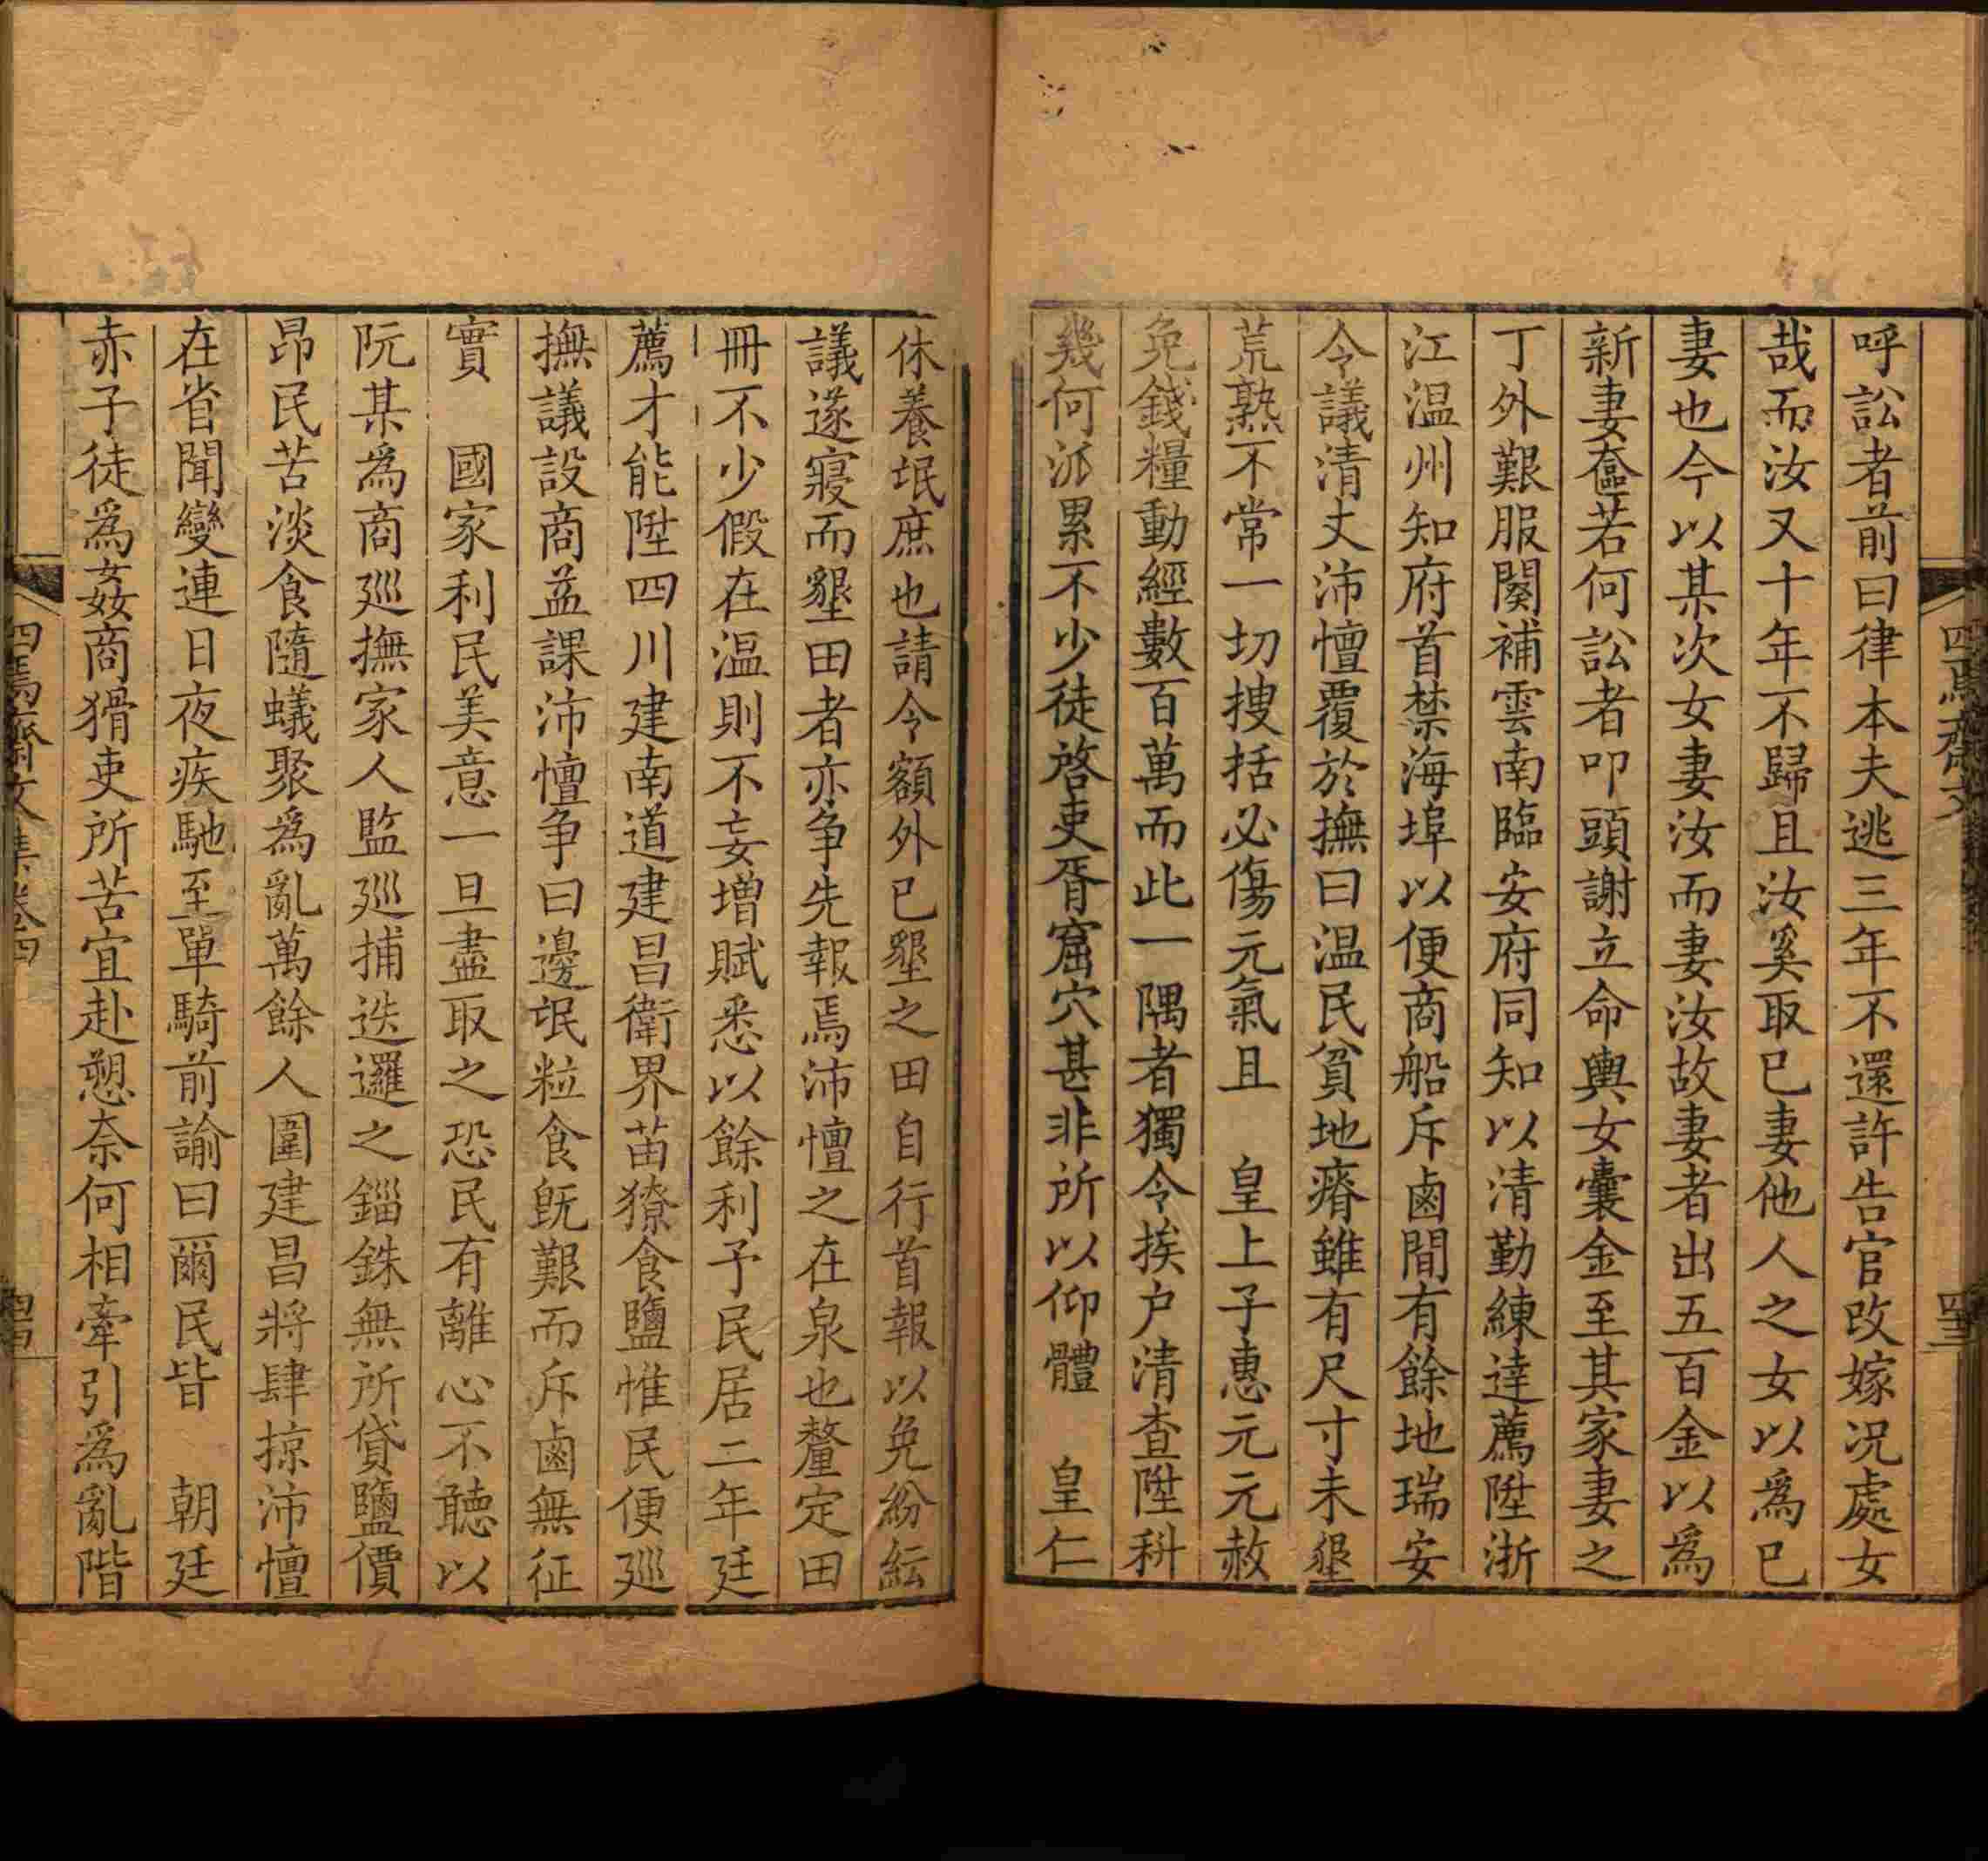 呼訟者前曰律本夫逃三年不還許告官改嫁况處女
哉而汝又十年不歸且汝奚取已妻他人之女以爲已
妻也今以某次女妻汝而妻汝故妻者出五百金以爲
新妻奩若何訟者叩頭謝立命輿女囊金至其家妻之
丁外艱服闋補雲南臨安府同知以清勤練達薦陞浙
江温州知府首禁海埠以便商船斥鹵間有餘地瑞安
令議清丈沛憻覆於撫曰温民貧地瘠雖有尺寸未墾
荒熟不常一切搜括必傷元氣且　皇上子惠元元赦
免錢糧動經數百萬而此一隅者獨令挨户清查陞科
幾何派累不少徒啓吏胥窟穴甚非所以仰體　皇仁
休養氓庶也請令額外已墾之田自行首報以免紛紜
議遂寢而墾田者亦争先報焉沛憻之在泉也釐定田
冊不少假在温則不妄增賦悉以餘利予民居二年廷
薦才能陞四川建南道建昌衛界苗獠食鹽惟民便廵
撫議設商益課沛憻争曰邊氓粒食既艱而斥鹵無征
實　國家利民美意一旦盡取之恐民有離心不聽以
阮某爲商廵撫家人監廵捕迭邏之錙銖無所貸鹽價
昂民苦淡食隨蟻聚爲亂萬餘人圍建昌將肆掠沛憻
在省聞變連日夜疾馳至單騎前諭曰爾民皆　朝廷
赤子徒爲姦商猾吏所苦宜赴愬奈何相牽引爲亂階
四焉齋文集卷四